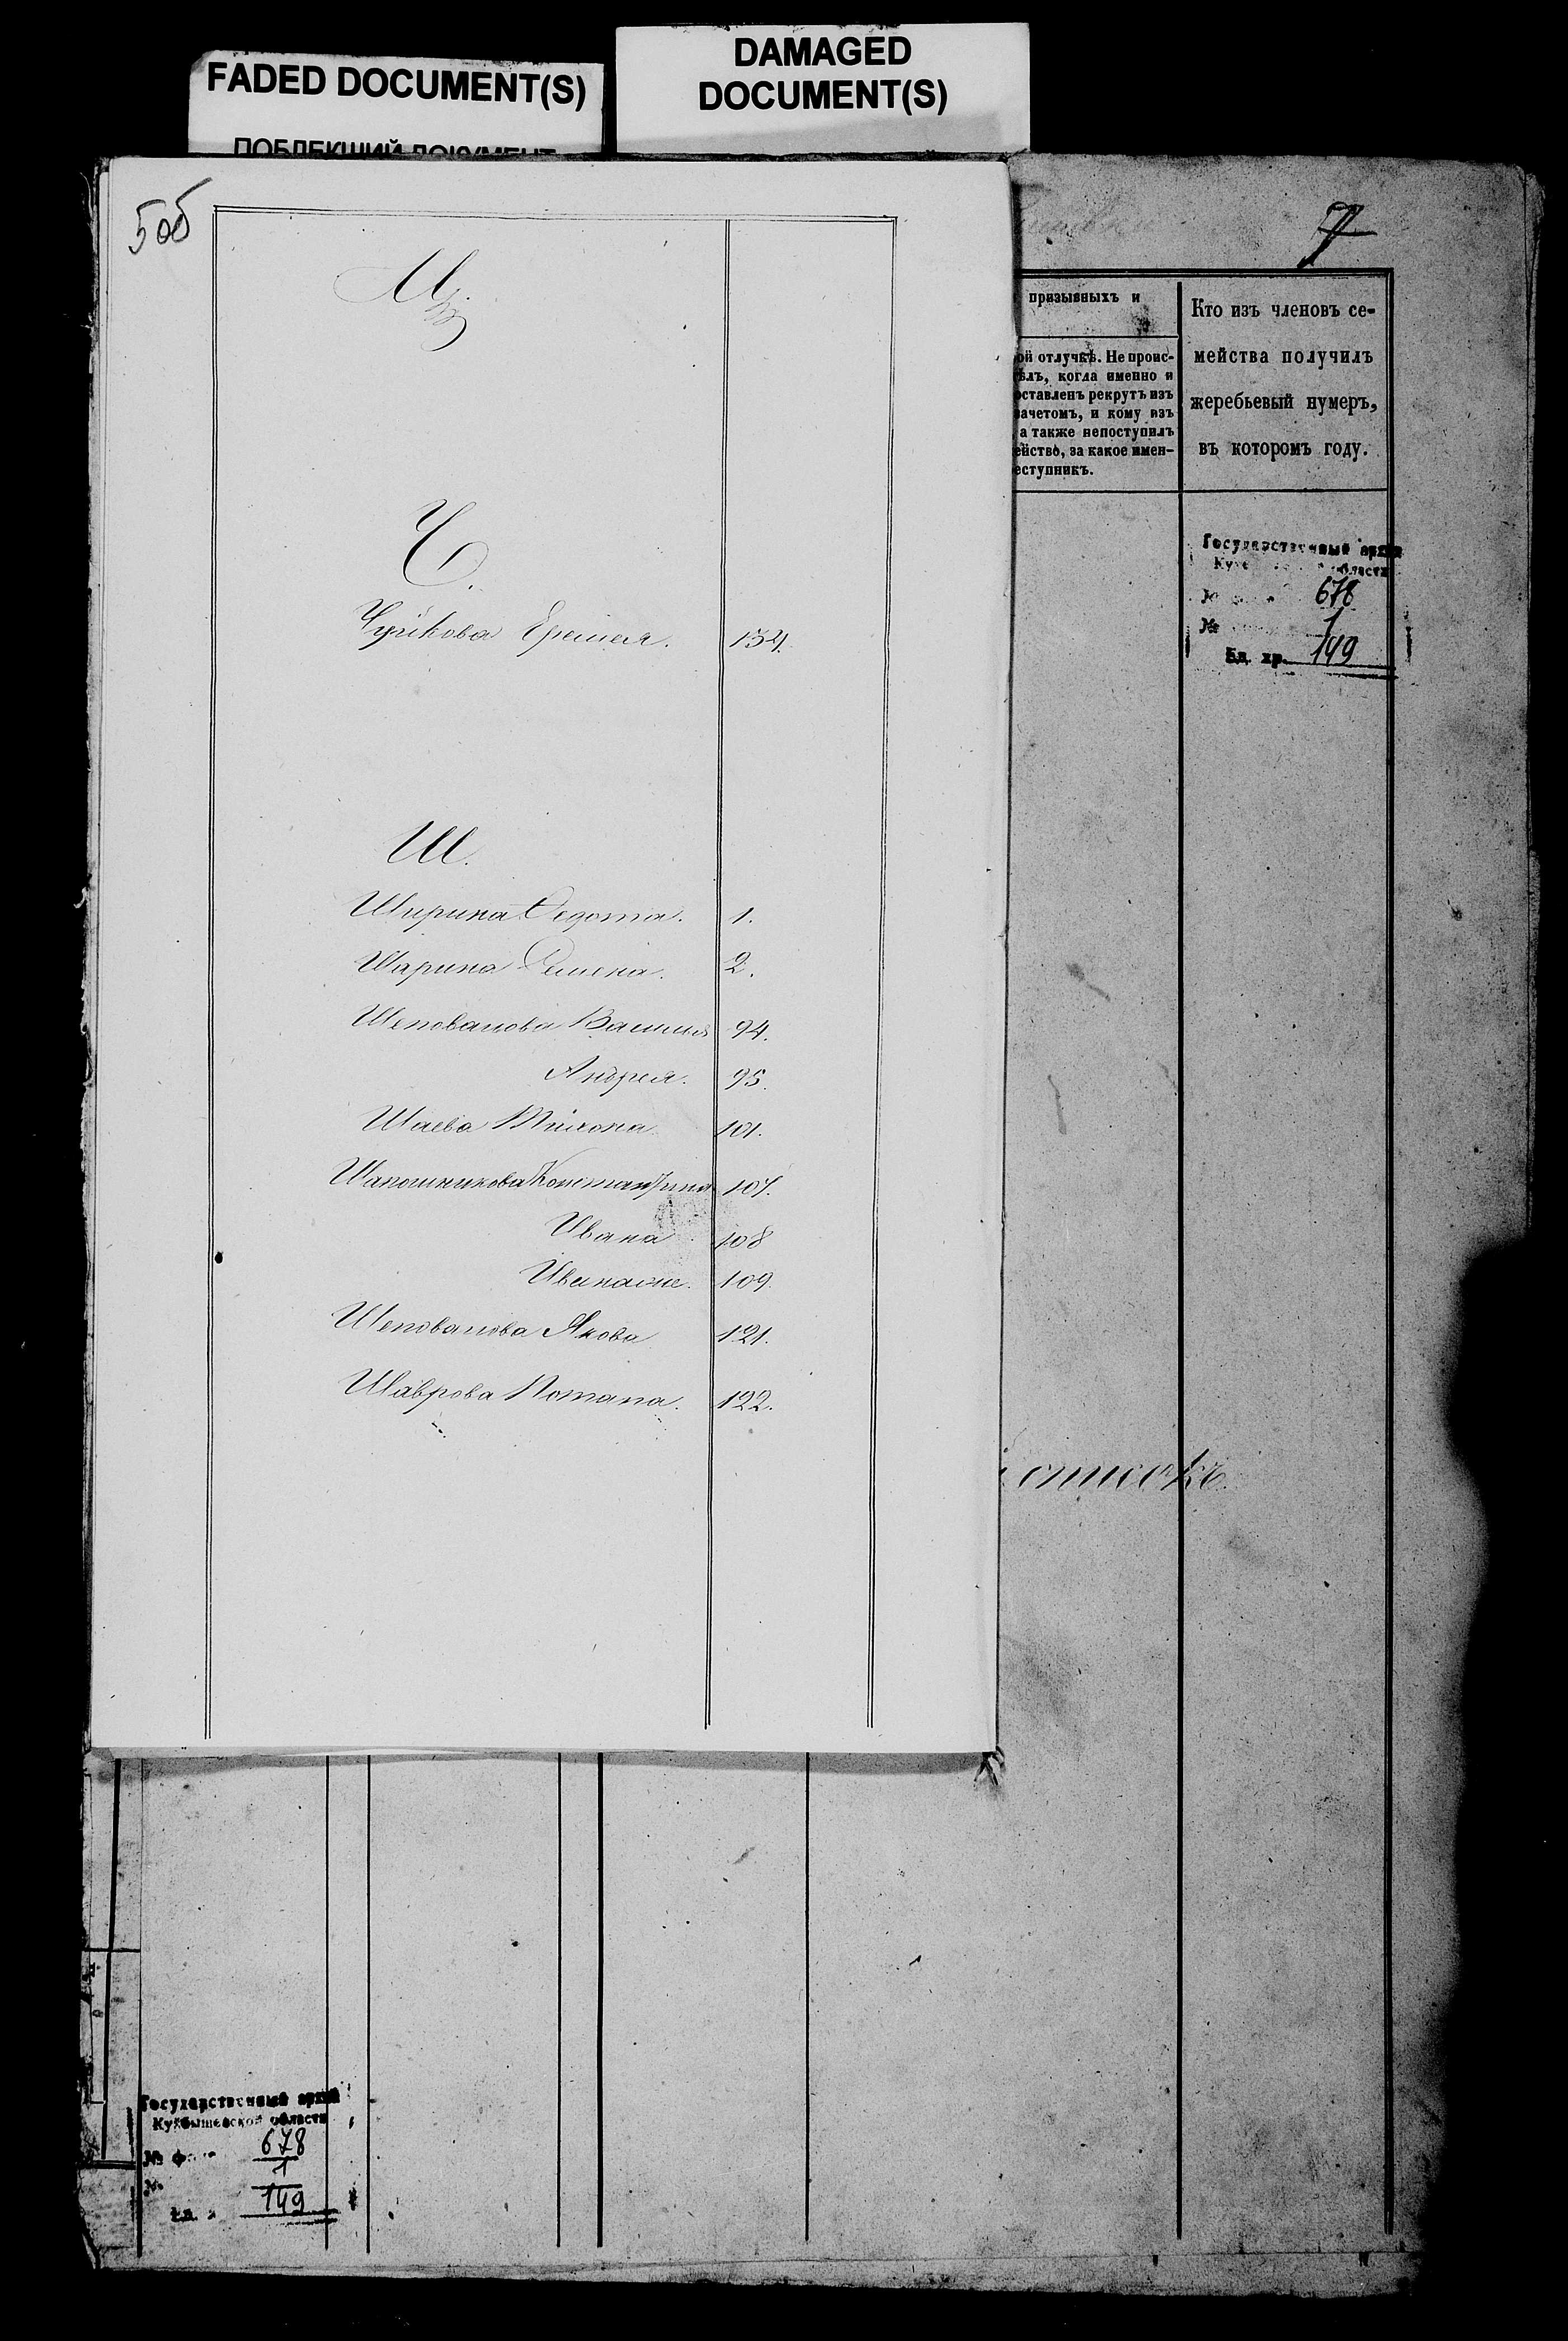 FADED DOCUMENT(S)
ПОБЛЕКШИЙ ДОКУМЕНТ
DAMAGED
DOCUMENT(S)
5об
Ц.
Ч.
Чуйкова Еремея. 134.
Ш.
Ширина Федота. 1.
Шарина Семена. 2.
Шеповалова Василья 94.
Андрея. 95.
Шаева 101.
Шапошникова Константина 107.
Ивана 108
109.
Шеповалова Якова 121.
Шаврова Потапа. 122.
7
призывныхъ и
ой отлучкѣ. Не проис-
ѣлъ, когда именно и
оставленъ рекрутъ изъ
зачетомъ, и кому изъ
а также непоступилъ
ейство, за какое имен-
еступникъ.
Кто изъ членовъ се-
мейства получилъ
жеребьевый нумеръ,
въ которомъ году.
Государственный архив
области
678
№ 1
Ед. хр. 149
списокъ.
Государственный архив
Куйбышевской области
№ 678
№ 1
149